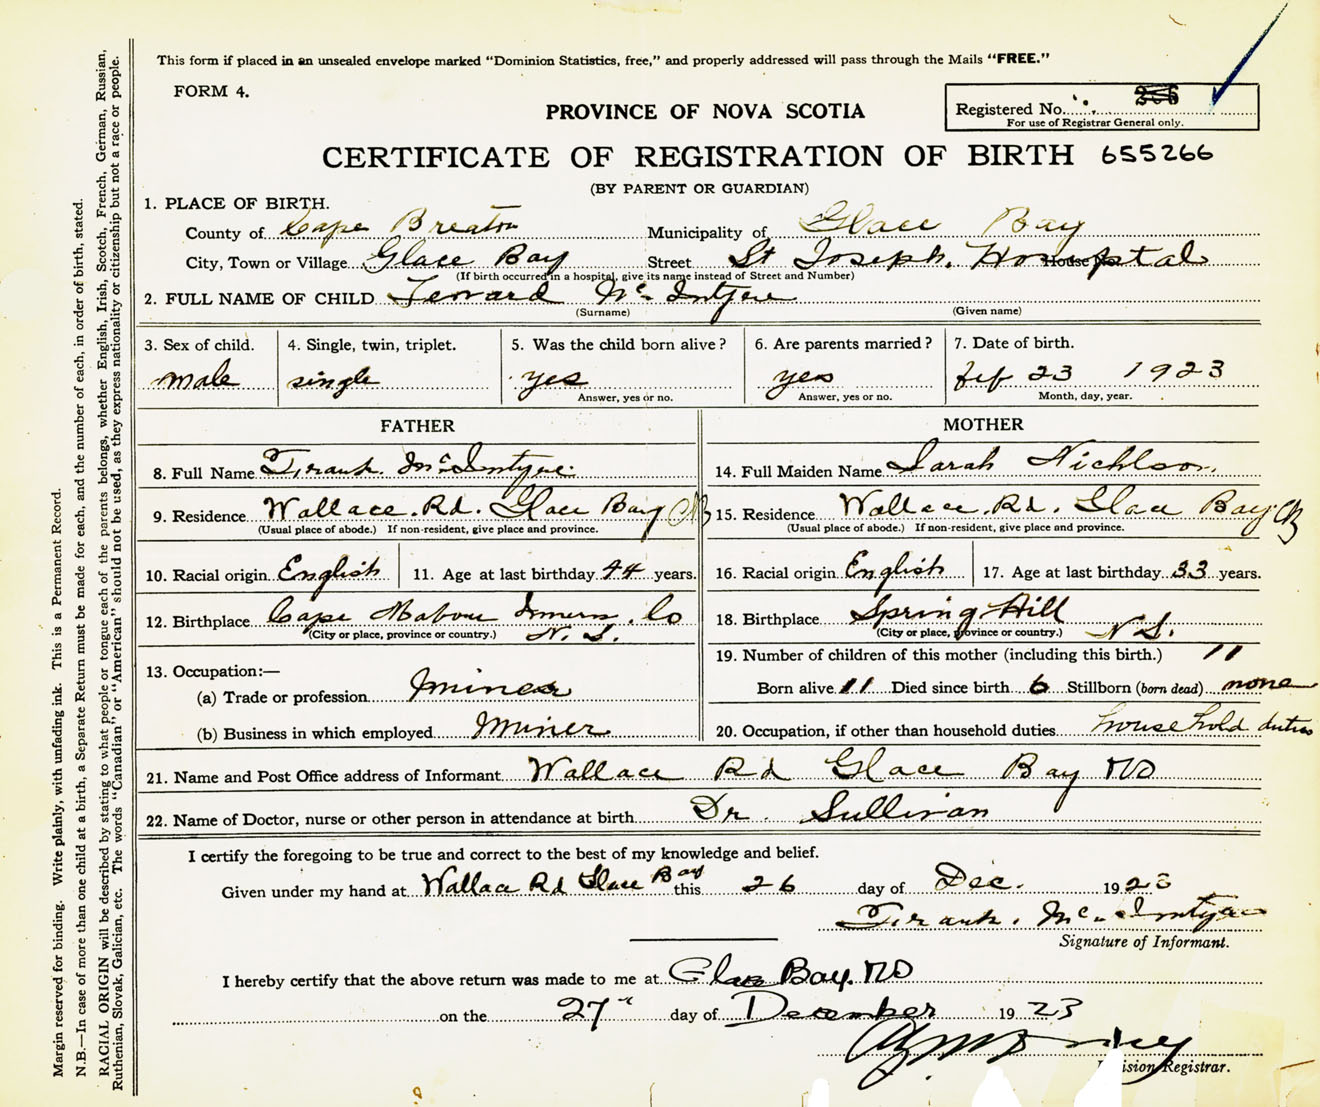 This form if placed in an unsealed envelope marked "Dominion Statistics, free," and properly addressed will pass through the Mails "FREE."
FORM 4.
Registered No.
For use of Registrar General only.
PROVINCE OF NOVA SCOTIA
CERTIFICATE OF REGISTRATION OF BIRTH 655266
(BY PARENT OR GUARDIAN)
1. PLACE OF BIRTH.
County of Cape Breaton Municipality of Glace Bay
City, Town or Village Glace Bay Street St Joseph. Hospital
(If birth occurred in a hospital, give its name instead of Street and Number)
2. FULL NAME OF CHILD McIntyre
(Surname) (Given name)
3. Sex of child. 4. Single, twin, triplet. 5. Was the child born alive? 6. Are parents married? 7. Date of birth.
male single yes yes feb 23 1923
Answer, yes or no. Answer, yes or no. Month, day, year.
FATHER MOTHER
8. Full Name Frank. McIntyre. 14. Full Maiden Name Sarah Nichlson.
9. Residence Wallace. Rd. Glace Bay CB 15. Residence Wallace. Rd. Glace Bay. CB
(Usual place of abode.) If non-resident, give place and province. (Usual place of abode.) If non-resident, give place and province.
10. Racial origin English 11. Age at last birthday 44 years. 16. Racial origin English 17. Age at last birthday 33 years.
12. Birthplace Cape Mabou Co N. S. 18. Birthplace Spring Hill N S.
(City or place, province or country.) (City or place, province or country.)
19. Number of children of this mother (including this birth.) 11
13. Occupation:—
(a) Trade or profession miner Born alive 11 Died since birth 6 Stillborn (born dead) none
(b) Business in which employed Miner 20. Occupation, if other than household duties household duties
21. Name and Post Office address of Informant Wallace Rd Glace Bay NS
22. Name of Doctor, nurse or other person in attendance at birth Dr. Sullivan
I certify the foregoing to be true and correct to the best of my knowledge and belief.
Given under my hand at Wallace Rd Glace Bay this 26 day of Dec. 1923
Frank. Mc. Intyre
Signature of Informant.
I hereby certify that the above return was made to me at Glace Bay. NS
on the 27" day of December 1923
Division Registrar.
Margin reserved for binding. Write plainly, with unfading ink. This is a Permanent Record.
N.B.—In case of more than one child at a birth, a Separate Return must be made for each, and the number of each, in order of birth, stated.
RACIAL ORIGIN will be described by stating to what people or tongue each of the parents belongs, whether English, Irish, Scotch, French, German, Russian,
Ruthenian, Slovak, Galician, etc. The words "Canadian" or "American" should not be used, as they express nationality or citizenship but not a race or people.